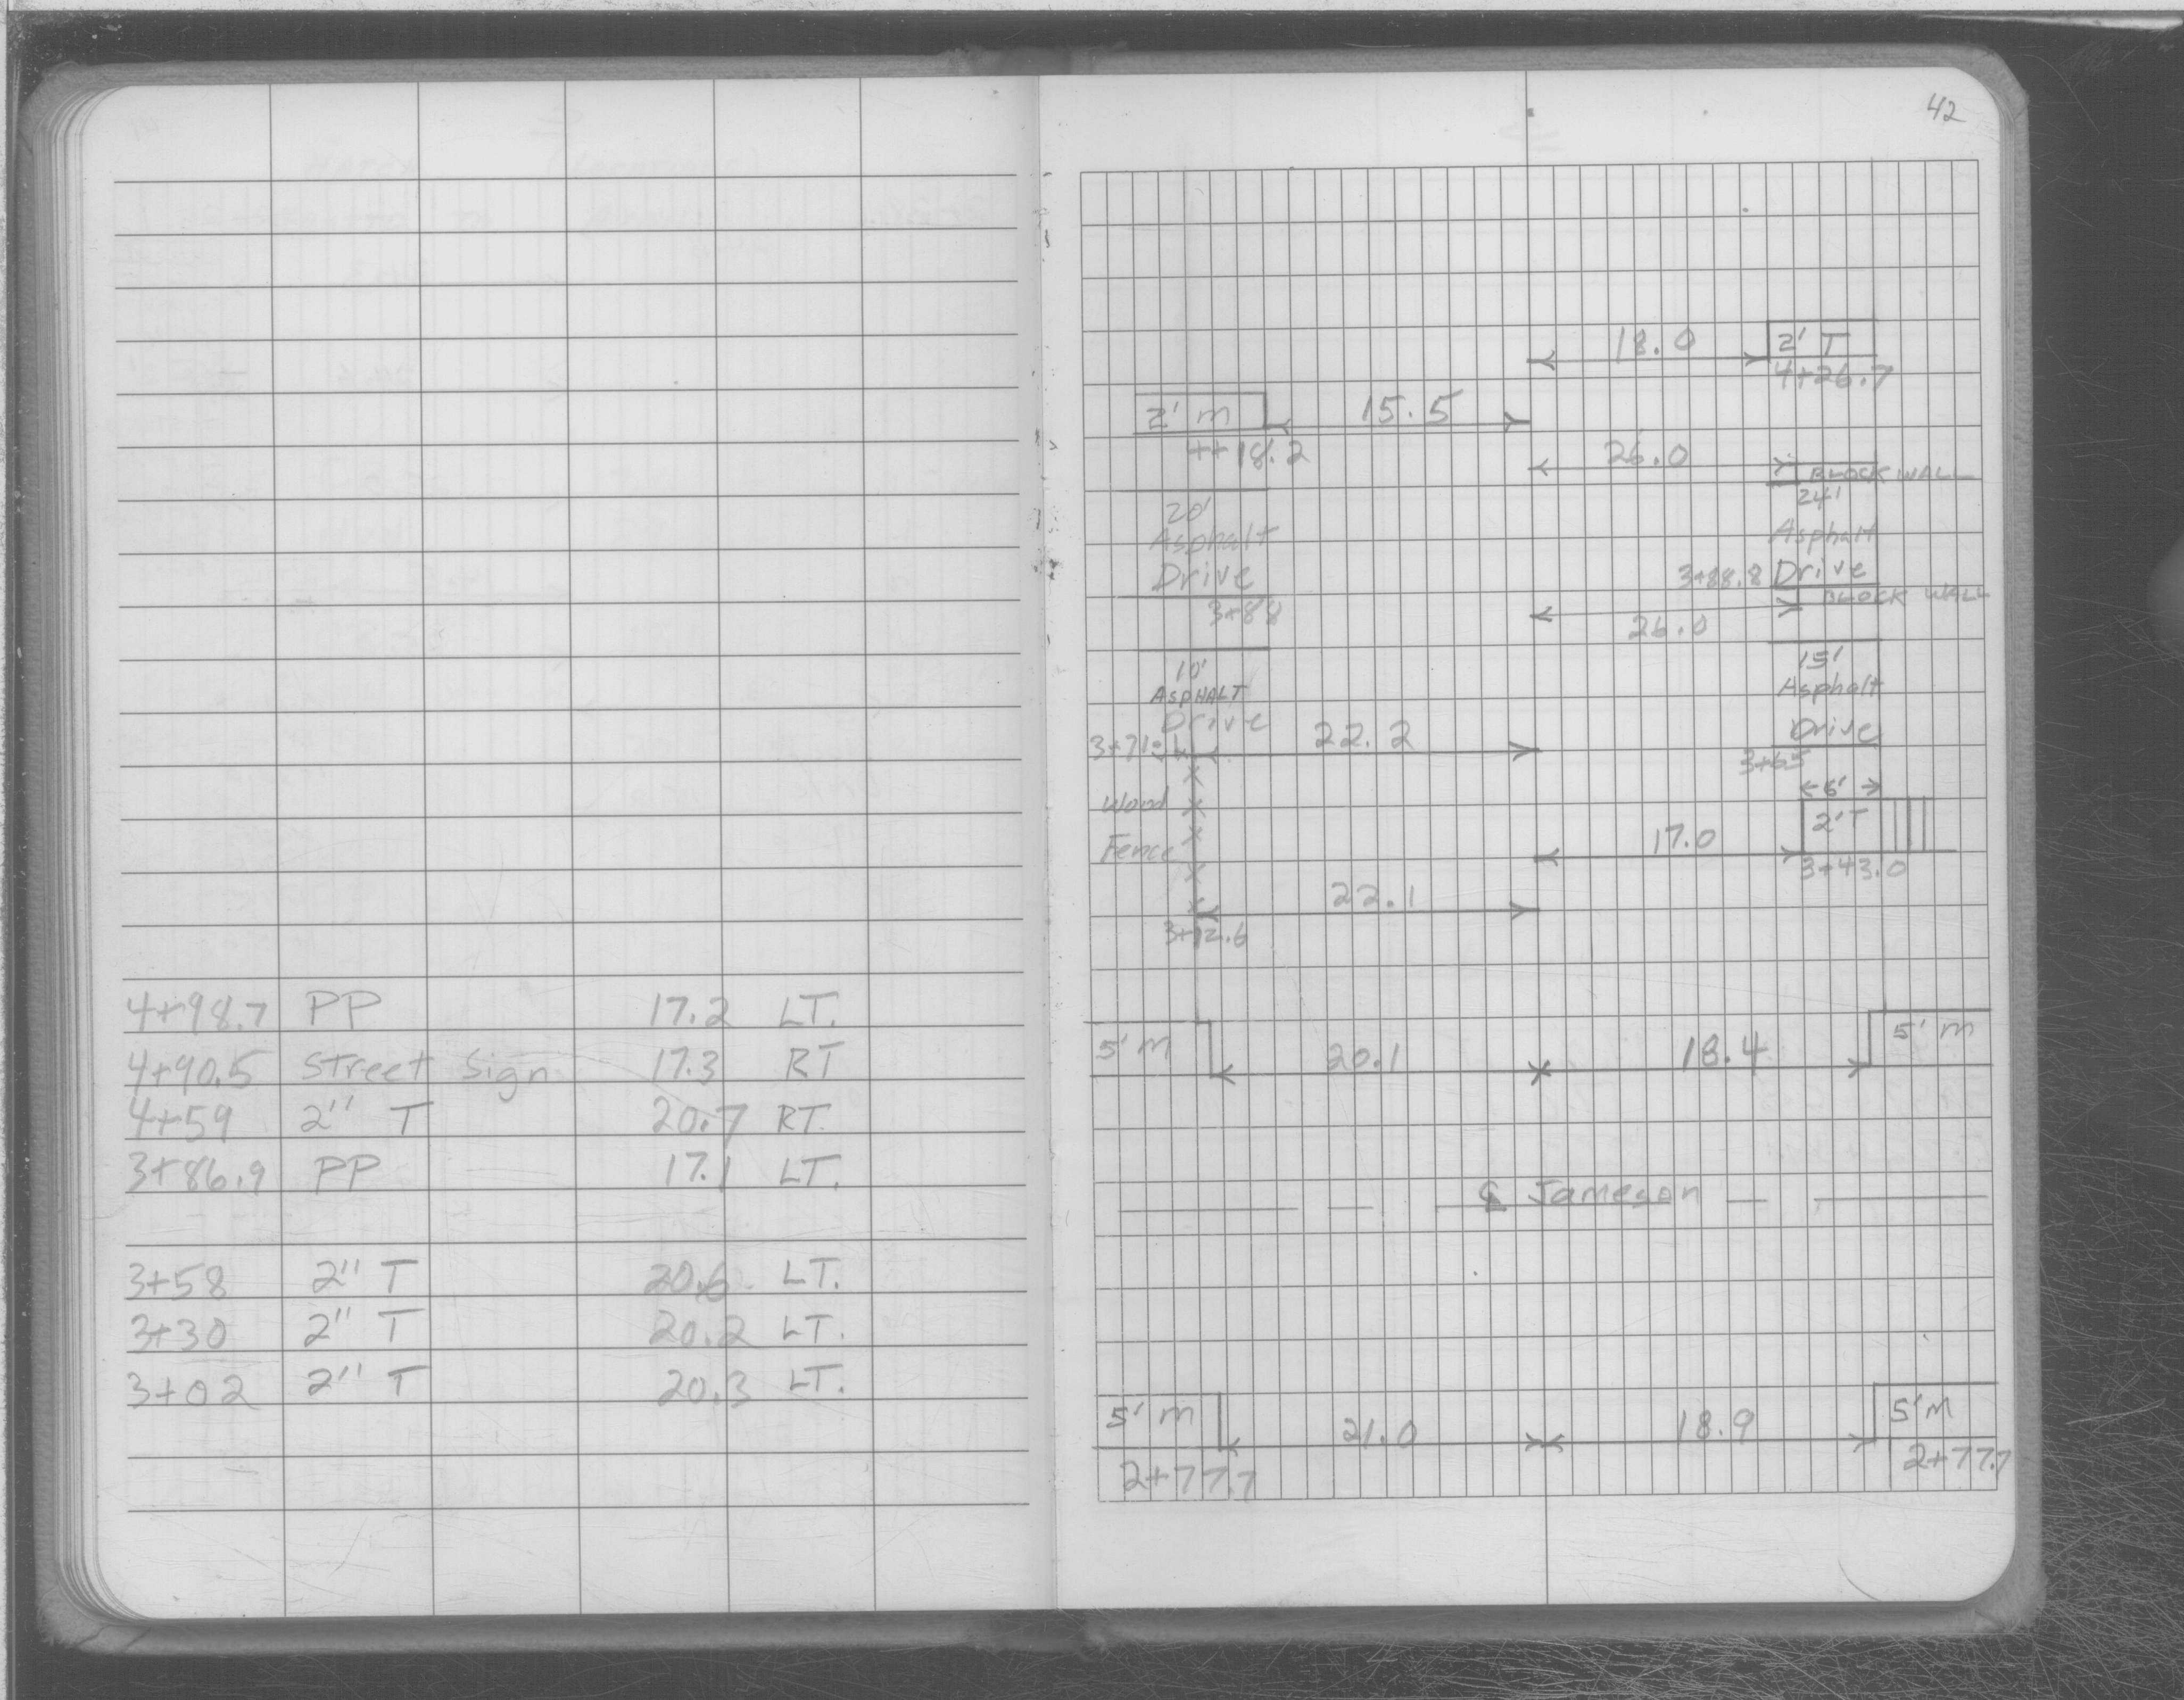 42
4+98.7 PP 17.2 LT.
4+90.5 Street Sign 17.3 RT
4+59 2" T 20.7 RT.
3+86.9 PP 17.1 LT.
3+58 2" T 20.6 LT.
3+30 2" T 20.2 LT.
3+02 2" T 20.3 LT.
18.0 2' T
4+26.7
2' M 15.5
4+18.2
26.0 BLOCK WALL
20' 24'
Asphalt Asphalt
Drive 3+88.8 Drive
3+88 BLOCK WALL
26.0
10' 15'
ASPHALT Asphalt
Drive Drive
3+71.1 22.2
3+65
Wood 6'
Fence 17.0 2' T
3+43.0
22.1
3+12.6
5' M 20.1 18.4 5' M
℄ Jameson
5' M 21.0 18.9 5' M
2+77.7 2+77.7